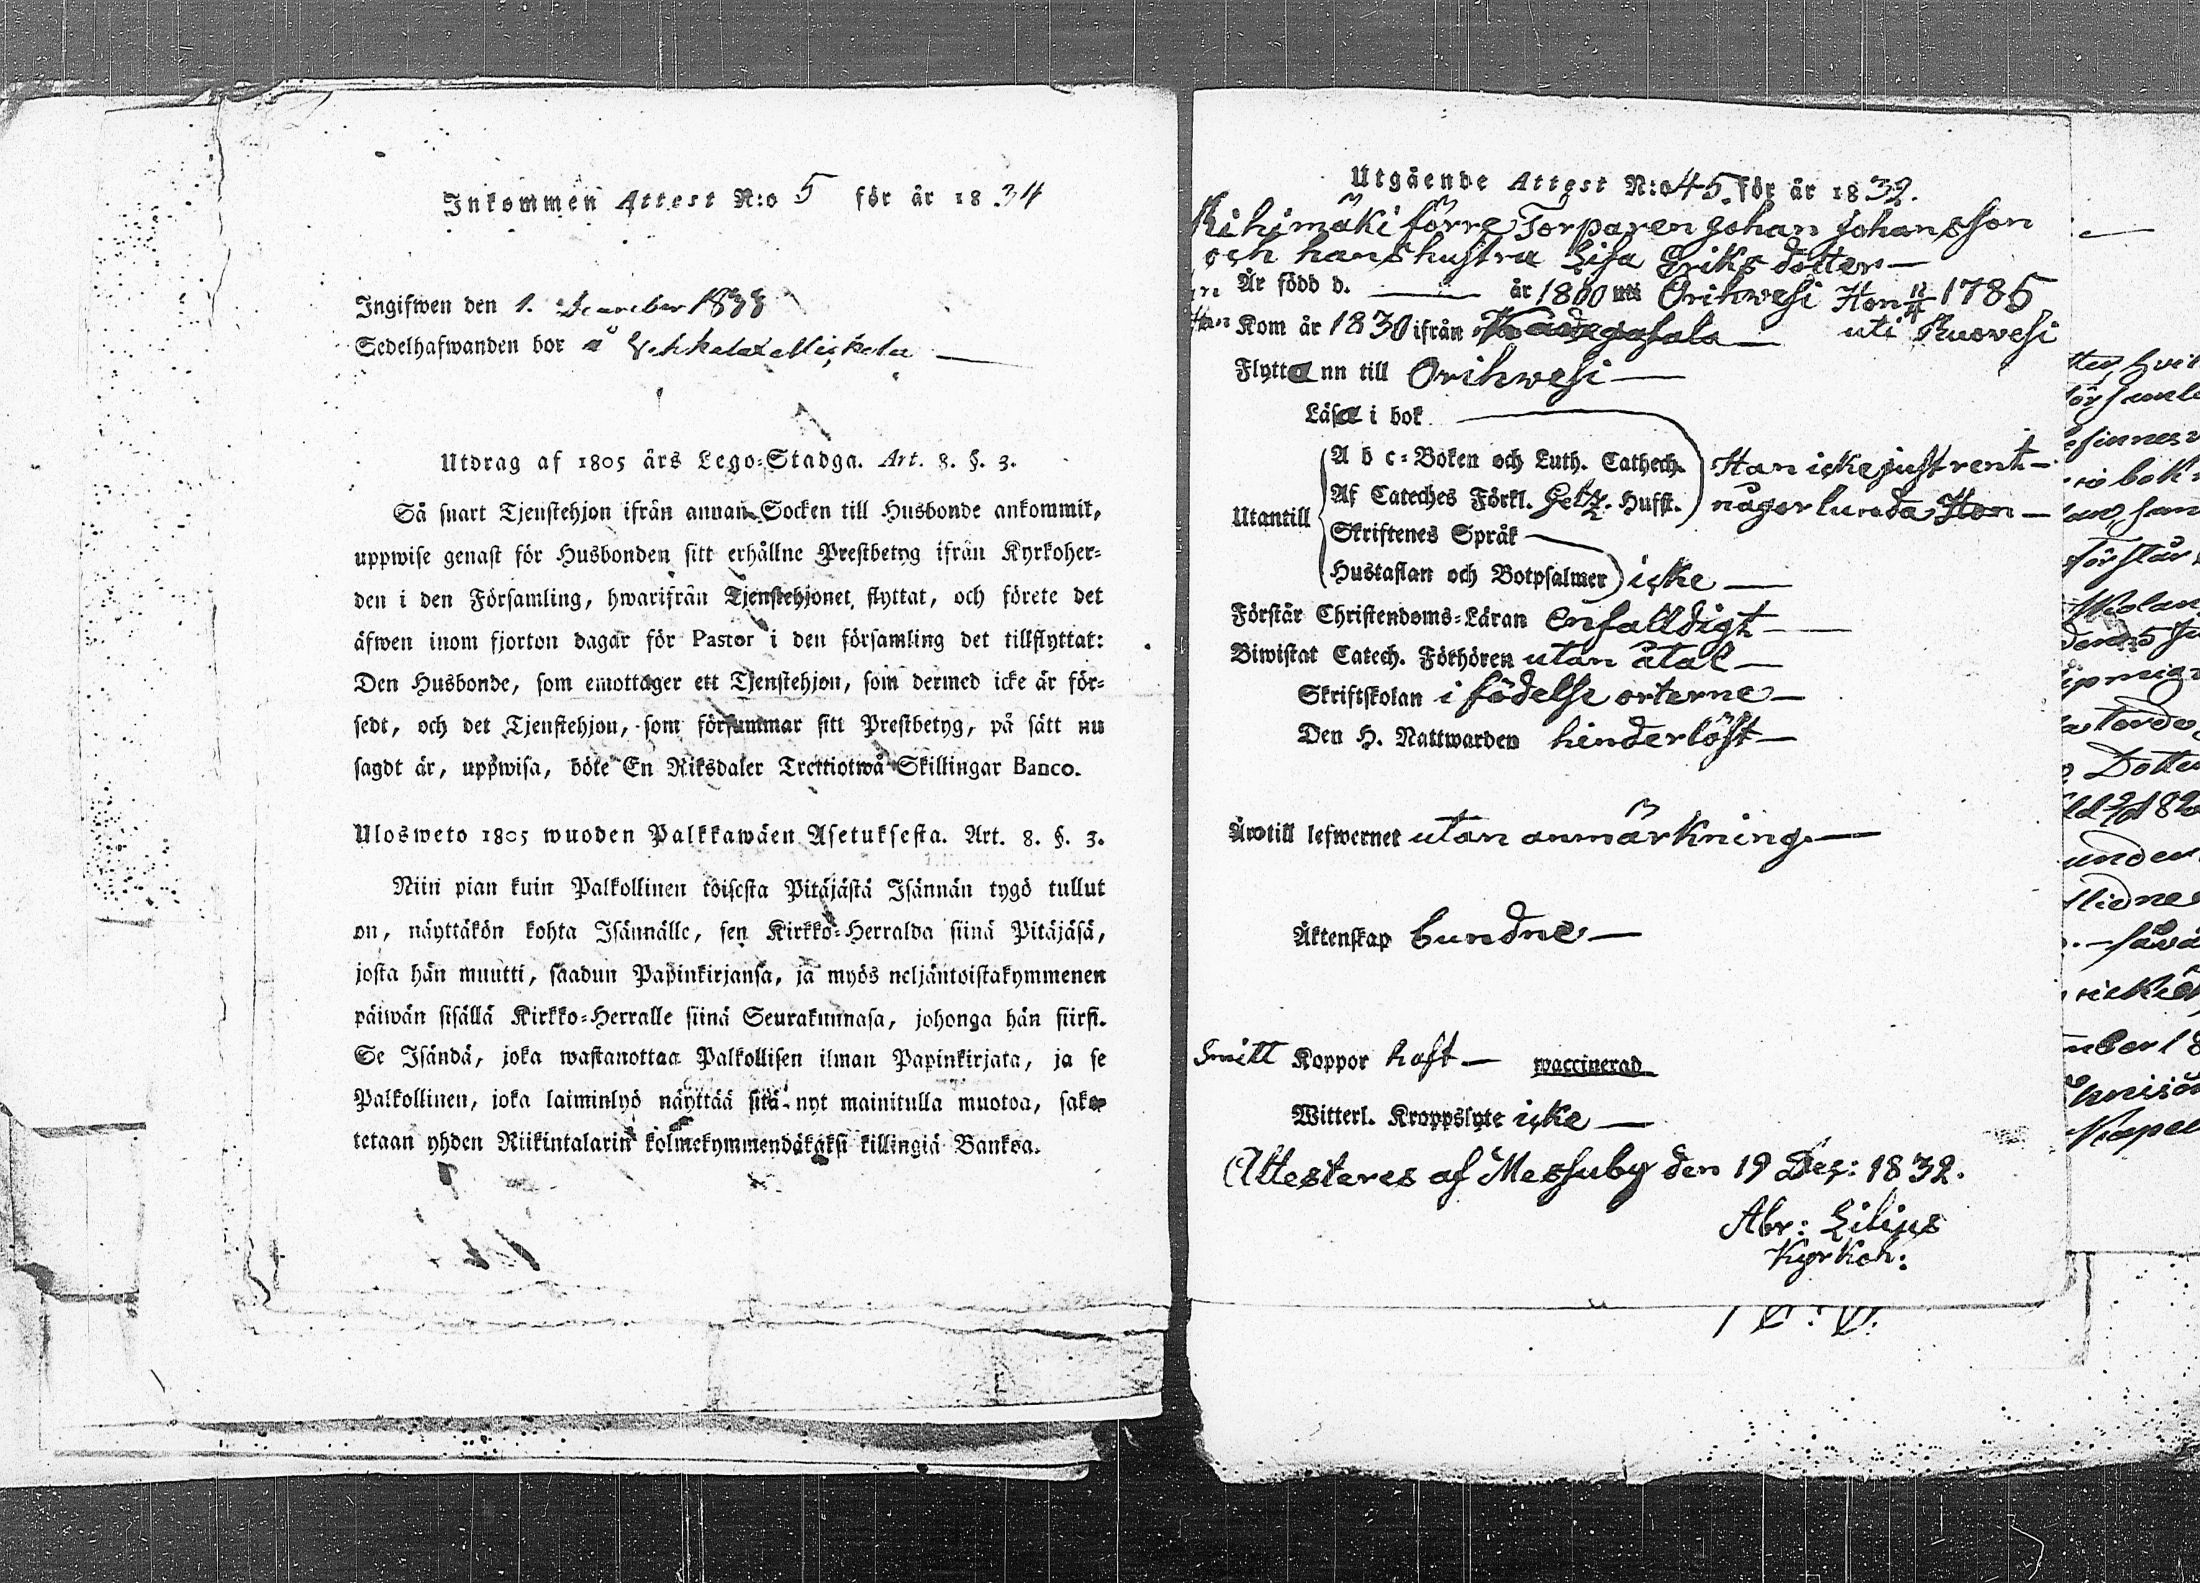 Inkommen Attest N:o 5 för år 1834
Ingifwen den 1. December 1833
Sedelhafwanden bor å
Utdrag af 1805 års Lego-Stadga. Art. 8. §. 3.
Så snart Tjenstehjon ifrån annan Socken till Husbonde ankommit,
uppwise genast för Husbonden sitt erhållne Prestbetyg ifrån Kyrkoher-
den i den Församling, hwarifrån Tjenstehjonet flyttat, och förete det
äfwen inom fjorton dagar för Pastor i den församling det tillflyttat:
Den Husbonde, som emottager ett Tjenstehjon, som dermed icke är för-
sedt, och det Tjenstehjon, som försummar sitt Prestbetyg, på sätt nu
sagdt är, uppwisa, böte En Riksdaler Trettiotwå Skillingar Banco.
Ulosweto 1805 wuoden Palkkawäen Asetuksesta. Art. 8. §. 3.
Niin pian kuin Palkollinen toisesta Pitäjästä Isännän tygö tullut
on, näyttäkön kohta Isännälle, sen Kirkko-Herralda siinä Pitäjäsä,
josta hän muutti, saadun Papinkirjansa, ja myös neljäntoistakymmenen
päiwän sisällä Kirkko-Herralle siinä Seurakunnasa, johonga hän siirsi.
Se Isändä, joka wastanottaa Palkollisen ilman Papinkirjata, ja se
Palkollinen, joka laiminlyö näyttää sitä nyt mainitulla muotoa, sako-
tetaan yhden Riikintalarin kolmekymmendäkaksi killingiä Bankoa.
Utgående Attest N:o 45. för år 1832.
Rihimäki förre Torparen Johan Johansson
och hans hustru Lisa Eriksdotter
Är född d. år 1800 uti Orihwesi Hon 11/4 1785
Han Kom år 1830 ifrån Kangasala uti Ruovesi
Flytta nn till Orihwesi
Läsa i bok
A b c-Boken och Luth. Cathech. Han icke just rent
Utantill Af Cateches Förkl. Hufst. någorlunda Hon
Skriftenes Språk
Hustaflan och Botpsalmer icke
Förstår Christendoms-Läran enfalldigt
Biwistat Catech. Förhören utan åtal
Skriftskolan i födelse orterne
Den H. Nattwarden hinderlöst
Äro till lefwernet utan anmärkning
Äktenskap bundne
Koppor haft waccinerad
Witterl. Kroppslyte icke
Attesteres af Messuby den 19 Dec: 1832.
Abr: Lilius
Kyrkoh: